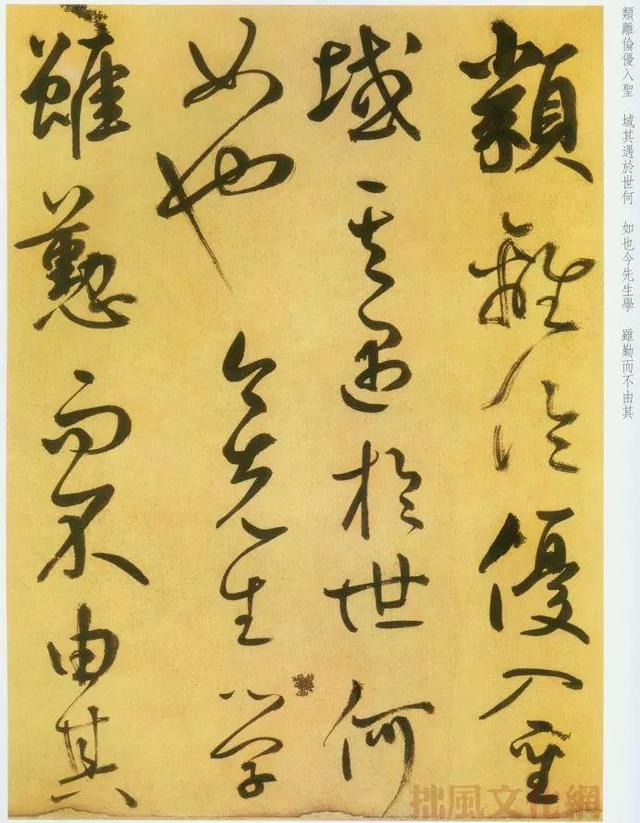 類離倫優入聖
域其遇於世何
如也今先生學
雖勤而不由其
類離倫優入聖 域其遇於世何 如也今先生學 雖勤而不由其
拙風文化網